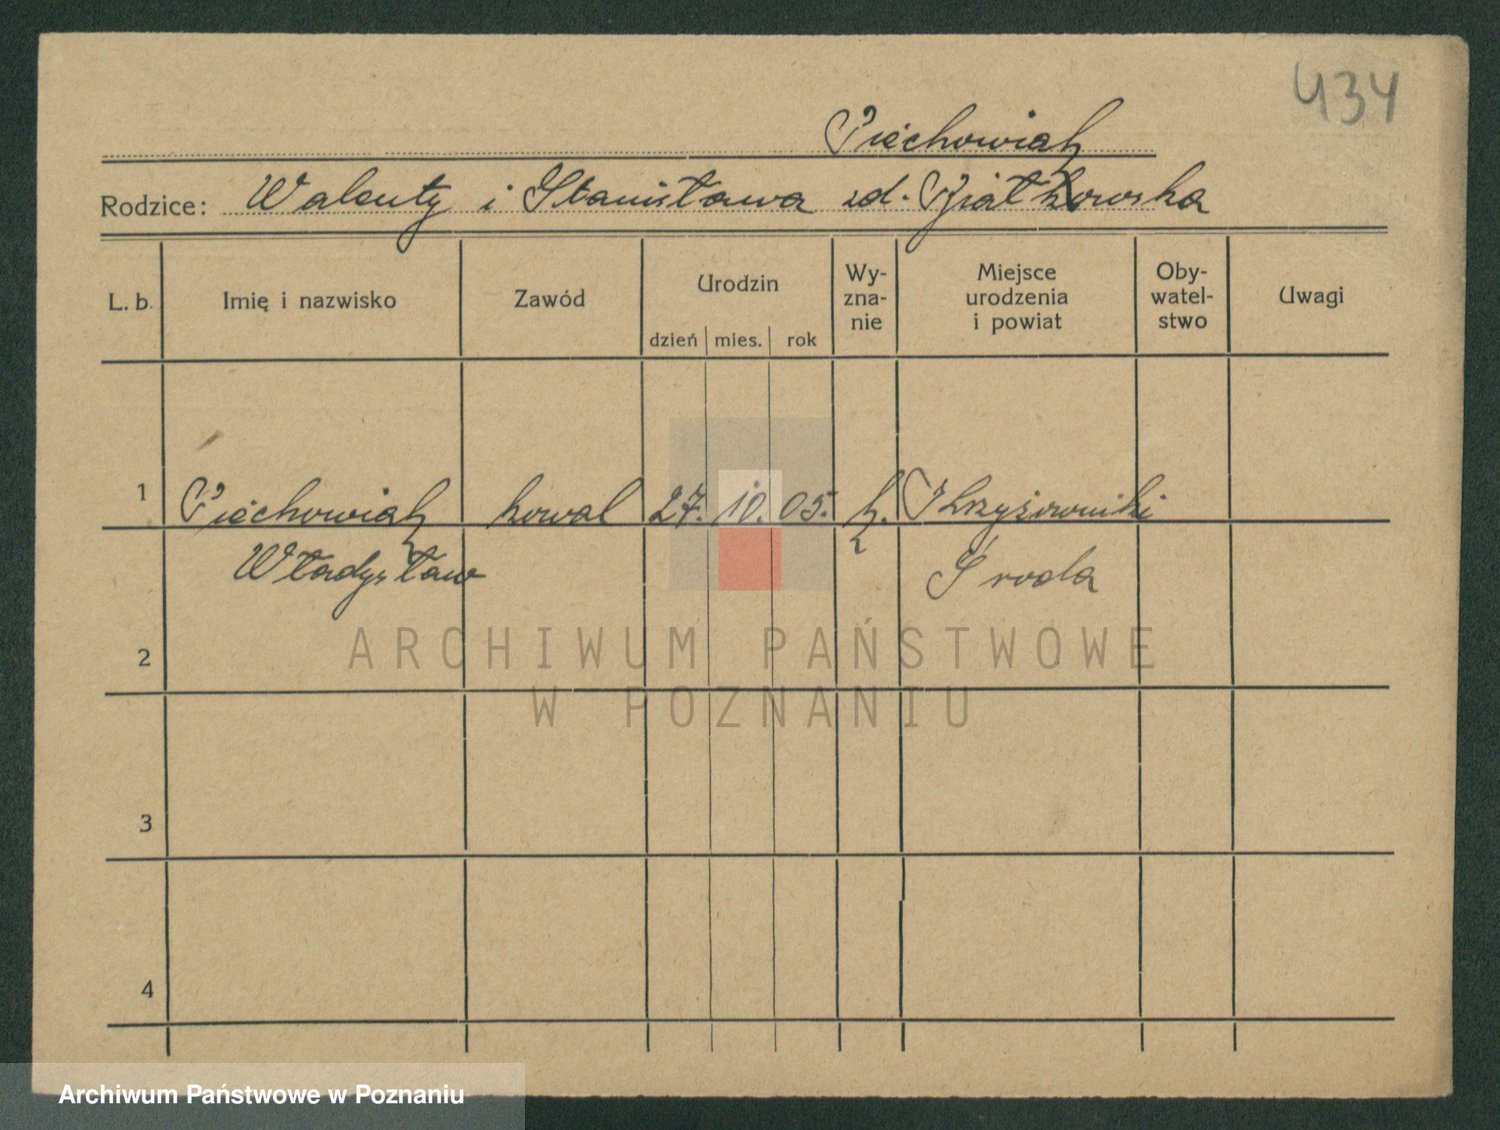 434
Piechowiak
Rodzice: Walenty i Stanisława zd. Białkowska
L. b. Imię i nazwisko Zawód Urodzin Wy-zna-nie Miejsce urodzenia i powiat Oby-watel-stwo Uwagi
dzień mies. rok
1 Piechowiak kowal 27. 10. 05. k. Krzyżowniki
Władysław Środa
2
3
4
ARCHIWUM PAŃSTWOWE
W POZNANIU
Archiwum Państwowe w Poznaniu